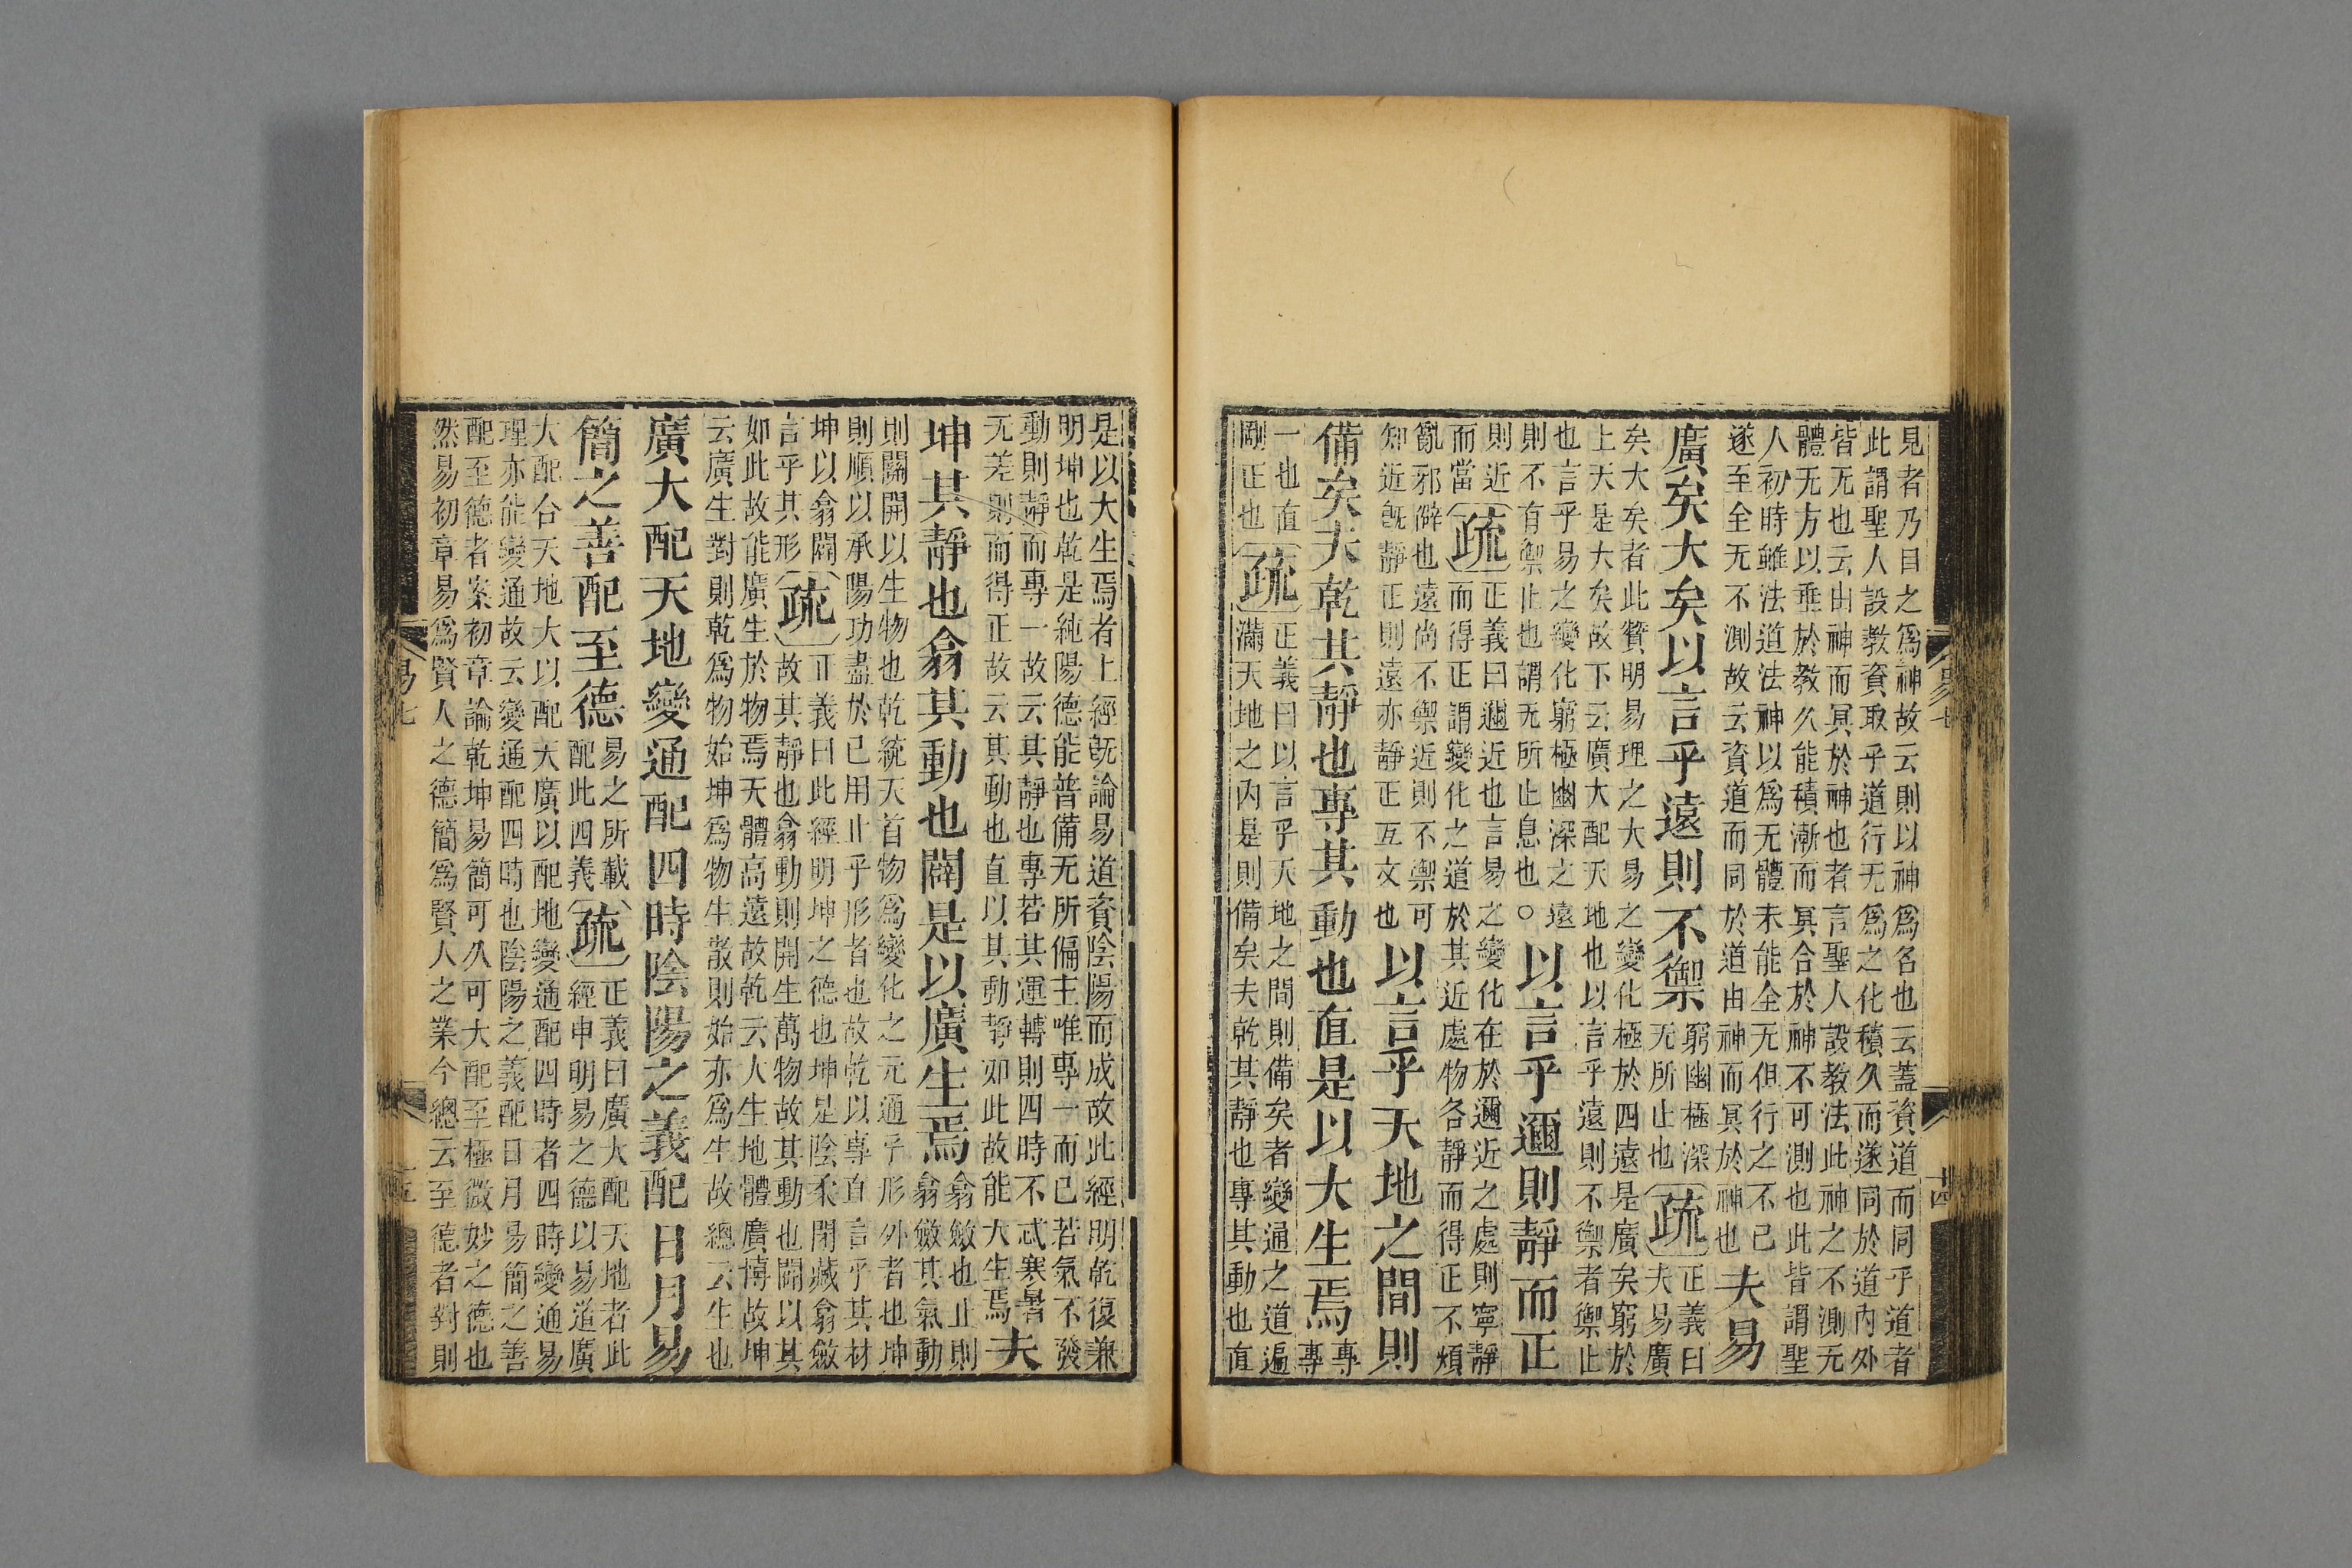 見者乃目之爲神故云則以神爲名也云蓋資道而同乎道者
此謂聖人設教資取乎道行无爲之化積久而遂同於道內外
皆无也云由神而冥於神也者言聖人設教法此神之不測无
體无方以垂於教久能積漸而冥合於神不可測也此皆謂聖
人初時雖法道法神以爲无體未能全无但行之不已
遂至全无不測故云資道而同於道由神而冥於神也夫易
廣矣大矣以言乎遠則不禦
窮幽極深
无所止也
疏
正義曰
夫易廣
矣大矣者此贊明易理之大易之變化極於四遠是廣矣窮於
上天是大矣故下云廣大配天地也以言乎遠則不禦者禦止
也言乎易之變化窮極幽深之遠
則不有禦止也謂无所止息也○以言乎邇則靜而正
則近
而當
疏
正義曰邇近也言易之變化在於邇近之處則寧靜
而得正謂變化之道於其近處物各靜而得正不煩
亂邪僻也遠尚不禦近則不禦可
知近旣靜正則遠亦靜正互文也以言乎天地之間則
備矣夫乾其靜也專其動也直是以大生焉
專專
一也直
剛正也
疏
正義曰以言乎天地之間則備矣者變通之道遍
滿天地之內是則備矣夫乾其靜也專其動也直
是以大生焉者上經旣論易道資陰陽而成故此經明乾復兼
明坤也乾是純陽德能普備无所偏主唯專一而已若氣不發
動則靜而專一故云其靜也專若其運轉則四時不忒寒暑
无差則而得正故云其動也直以其動靜如此故能大生焉夫
坤其靜也翕其動也闢是以廣生焉
翕斂也止則
翕斂其氣動
則闢開以生物也乾統天首物爲變化之元通乎形外者也坤
則順以承陽功盡於已用止乎形者也故乾以專直言乎其材
坤以翕闢
言乎其形
疏
正義曰此經明坤之德也坤是陰柔閉藏翕斂
故其靜也翕動則開生萬物故其動也闢以其
如此故能廣生於物焉天體高遠故乾云大生地體廣博故坤
云廣生對則乾爲物始坤爲物生散則始亦爲生故總云生也
廣大配天地變通配四時陰陽之義配日月易
簡之善配至德
易之所載
配此四義
疏
正義曰廣大配天地者此
經申明易之德以易道廣
大配合天地大以配天廣以配地變通配四時者四時變通易
理亦能變通故云變通配四時也陰陽之義配日月易簡之善
配至德者案初章論乾坤易簡可久可大配至極微妙之德也
然易初章易爲賢人之德簡爲賢人之業今總云至德者對則
易七